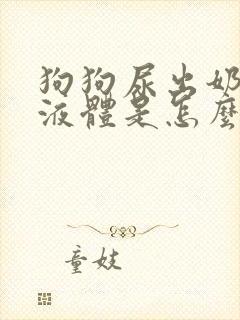 狗狗尿出奶
液體是怎麼
童妓